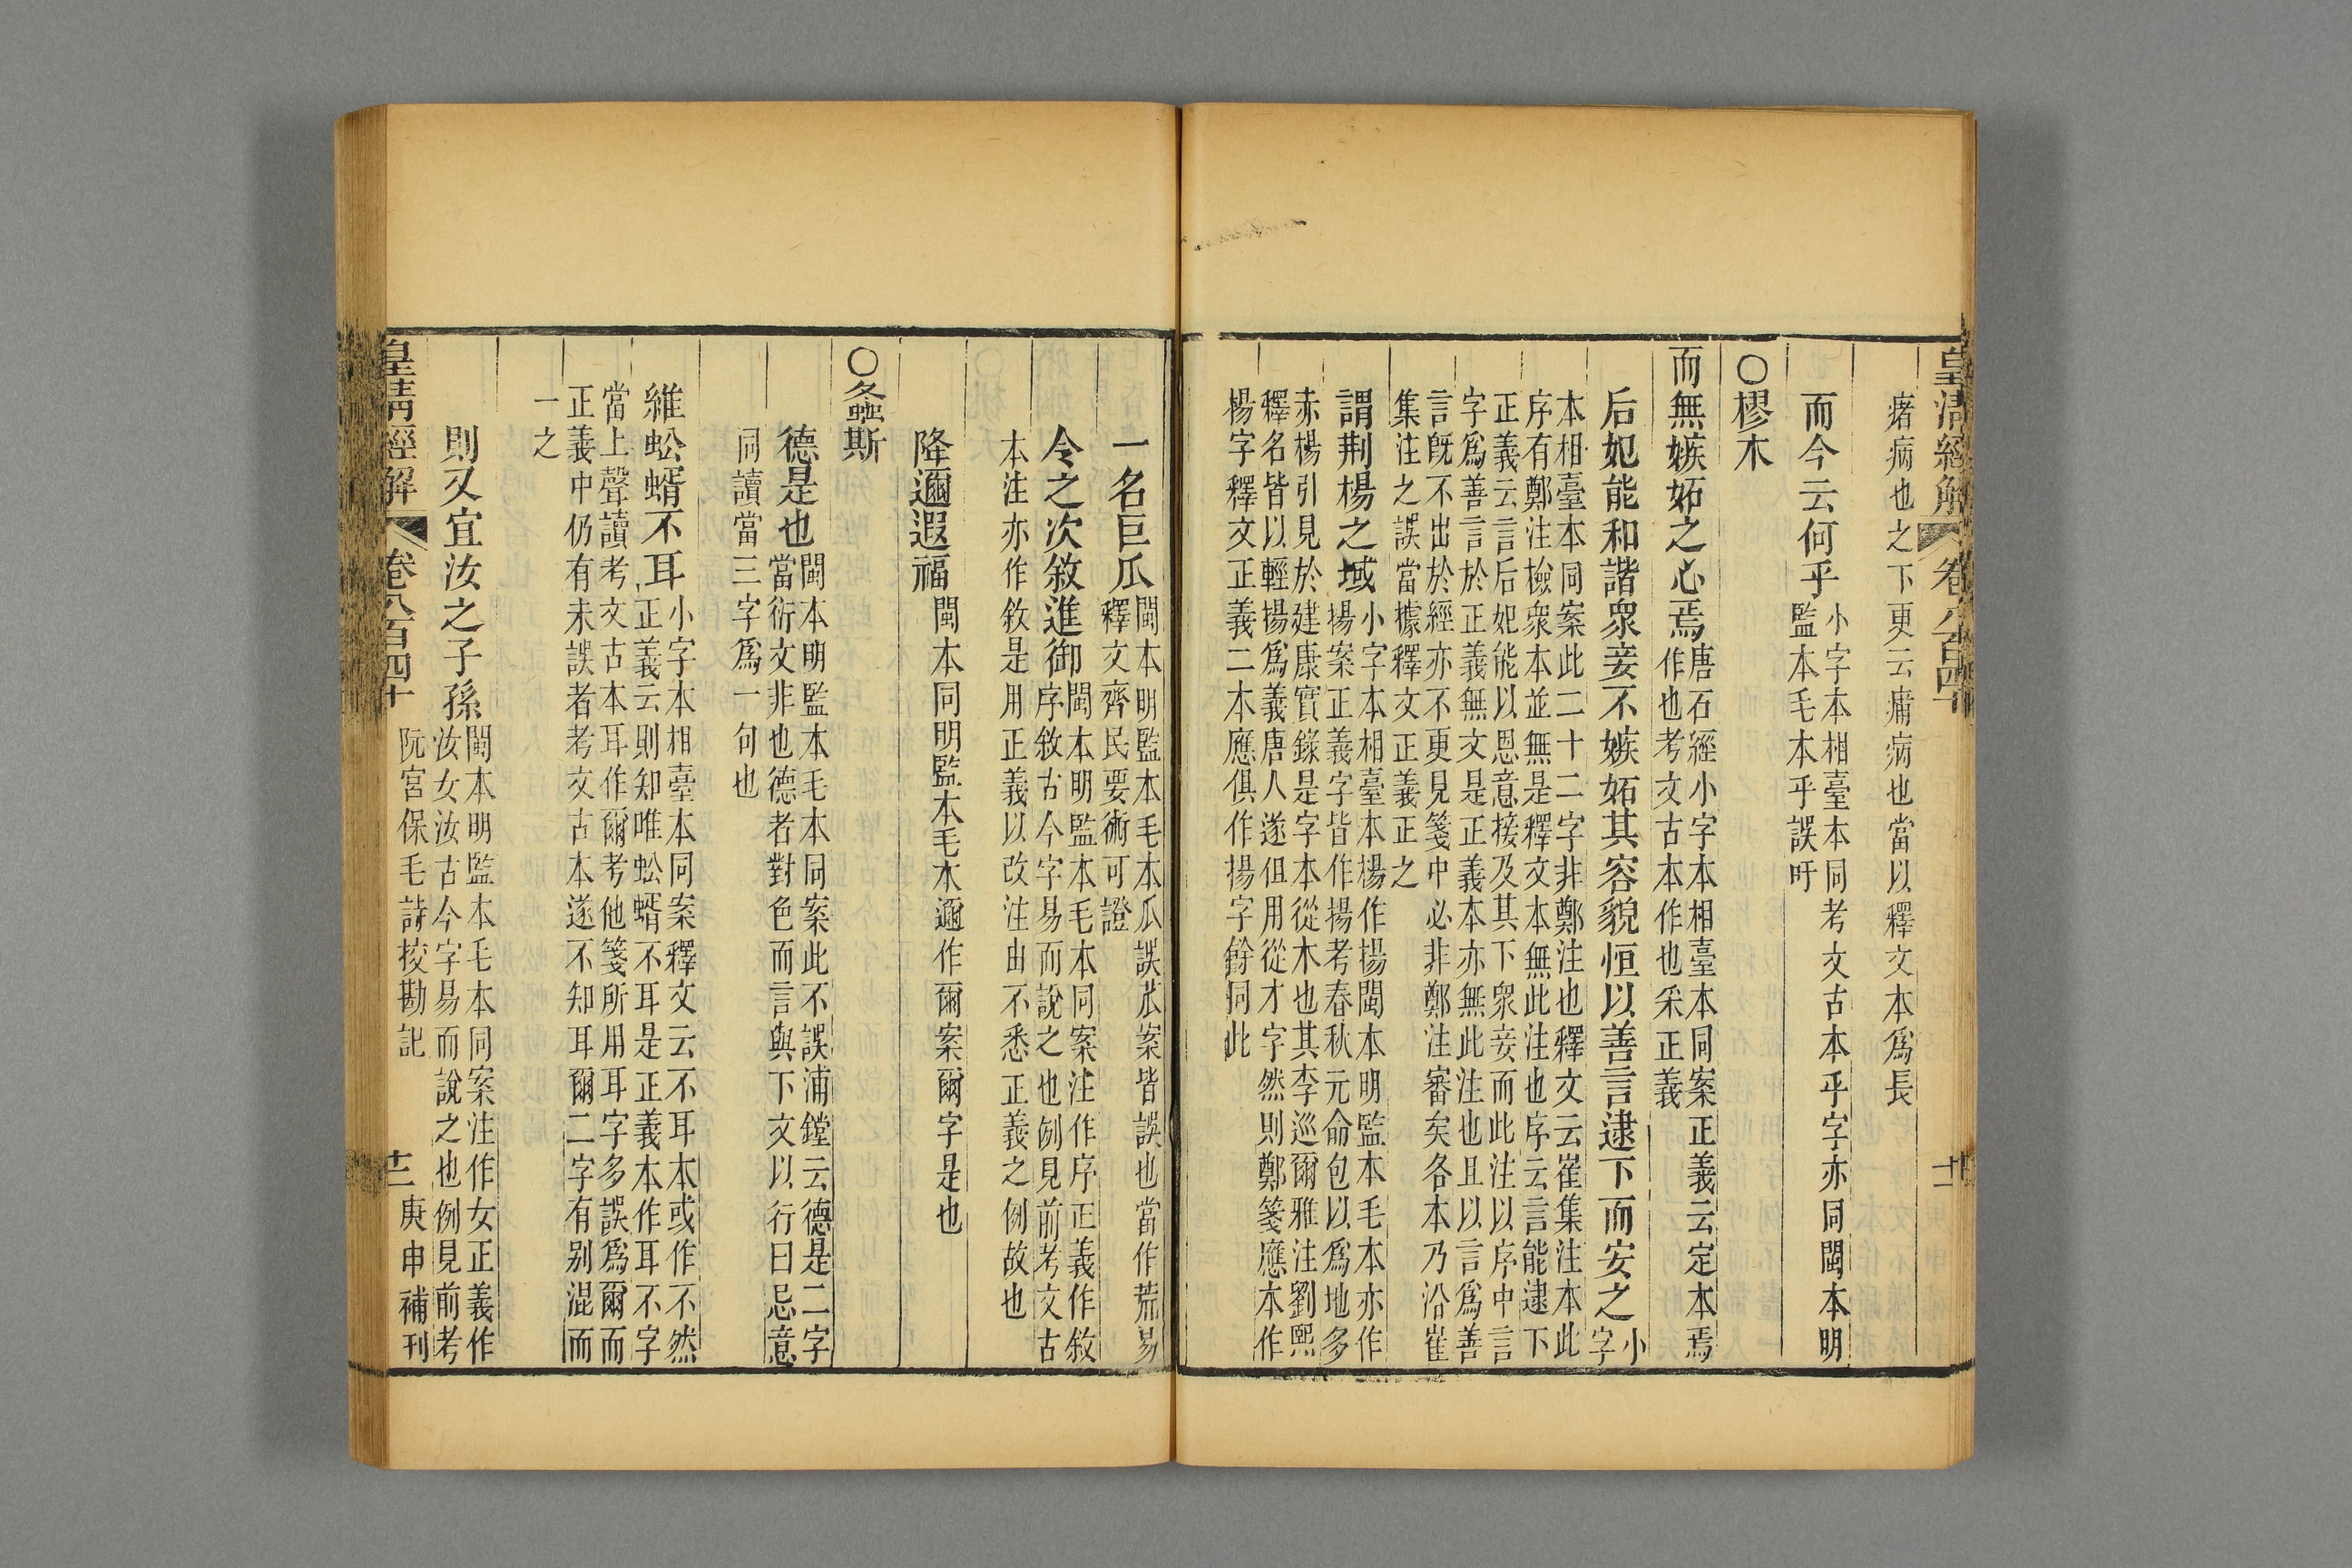 皇清經解 卷八百四十 十一
瘏病也之下更云痡病也當以釋文本爲長
而今云何乎小字本相臺本同考文古本乎字亦同閩本明
監本毛本乎誤吁
○樛木
而無嫉妬之心焉唐石經小字本相臺本同案正義云定本焉
作也考文古本作也采正義
后妃能和諧衆妾不嫉妬其容貌恒以善言逮下而安之小
字
本相臺本同案此二十二字非鄭注也釋文云崔集注本此
序有鄭注檢衆本並無是釋文本無此注也序云言能逮下
正義云言后妃能以恩意接及其下衆妾而此注以序中言
字爲善言於正義無文是正義本亦無此注也且以言爲善
言旣不出於經亦不更見箋中必非鄭注審矣各本乃沿崔
集注之誤當據釋文正義正之
謂荆楊之域小字本相臺本楊作揚閩本明監本毛本亦作
揚案正義字皆作揚考春秋元命包以爲地多
赤楊引見於建康實錄是字本從木也其李巡爾雅注劉熙
釋名皆以輕揚爲義唐人遂但用從才字然則鄭箋應本作
楊字釋文正義二本應俱作揚字餘同此
一名巨瓜閩本明監本毛本瓜誤苽案皆誤也當作荒易
釋文齊民要術可證
令之次敘進御閩本明監本毛本同案注作序正義作敘
序敘古今字易而說之也例見前考文古
本注亦作敘是用正義以改注由不悉正義之例故也
降邇遐福閩本同明監本毛本邇作爾案爾字是也
○螽斯
德是也閩本明監本毛本同案此不誤浦鏜云德是二字
當衍文非也德者對色而言與下文以行曰忌意
同讀當三字爲一句也
維蚣蝑不耳小字本相臺本同案釋文云不耳本或作不然
正義云則知唯蚣蝑不耳是正義本作耳不字
當上聲讀考文古本耳作爾考他箋所用耳字多誤爲爾而
正義中仍有未誤者考文古本遂不知耳爾二字有别混而
一之
則又宜汝之子孫閩本明監本毛本同案注作女正義作
汝女汝古今字易而說之也例見前考
阮宮保毛詩挍勘記 庚申補刊
皇清經解 卷八百四十 十二